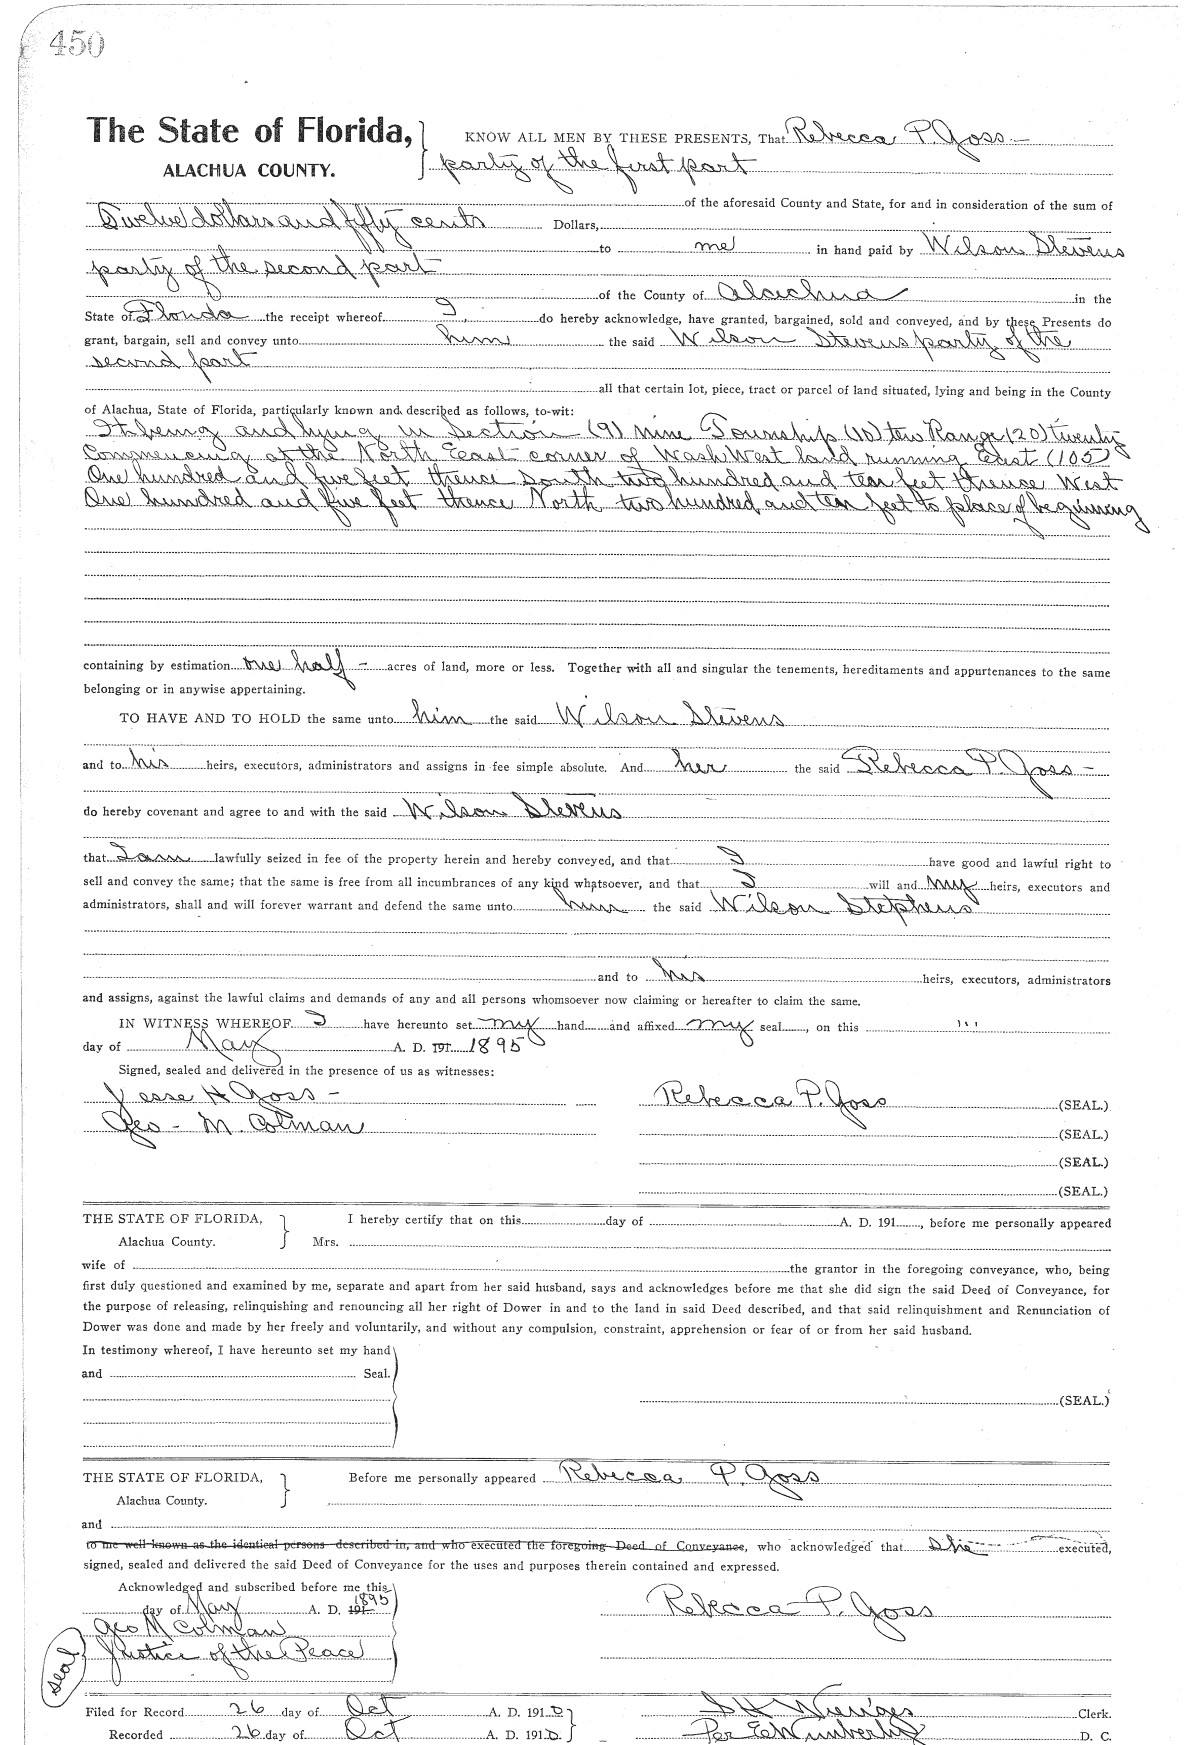 450
The State of Florida, KNOW ALL MEN BY THESE PRESENTS, That Rebecca P. Goss —
ALACHUA COUNTY. party of the first part
of the aforesaid County and State, for and in consideration of the sum of
Twelve dollars and fifty cents Dollars,
to me in hand paid by Wilson Stevens
party of the second part
of the County of Alachua in the
State of Florida the receipt whereof I, do hereby acknowledge, have granted, bargained, sold and conveyed, and by these Presents do
grant, bargain, sell and convey unto him the said Wilson Stevens party of the
second part
all that certain lot, piece, tract or parcel of land situated, lying and being in the County
of Alachua, State of Florida, particularly known and described as follows, to-wit:
It being and lying in Section (9) nine Township (10) ten Range (20) twenty
Commencing at the North East corner of Wash West land running East (105)
One hundred and five feet thence South two hundred and ten feet thence West
One hundred and five feet thence North two hundred and ten feet to place of beginning
containing by estimation one half – acres of land, more or less. Together with all and singular the tenements, hereditaments and appurtenances to the same
belonging or in anywise appertaining.
TO HAVE AND TO HOLD the same unto him the said Wilson Stevens
and to his heirs, executors, administrators and assigns in fee simple absolute. And her the said Rebecca P. Goss –
do hereby covenant and agree to and with the said Wilson Stevens
that I am lawfully seized in fee of the property herein and hereby conveyed, and that I have good and lawful right to
sell and convey the same; that the same is free from all incumbrances of any kind whatsoever, and that I will and my heirs, executors and
administrators, shall and will forever warrant and defend the same unto him the said Wilson Stephens
and to his heirs, executors, administrators
and assigns, against the lawful claims and demands of any and all persons whomsoever now claiming or hereafter to claim the same.
IN WITNESS WHEREOF I have hereunto set my hand and affixed my seal, on this
day of May A. D. 191 1895
Signed, sealed and delivered in the presence of us as witnesses:
Jesse H Goss – Rebecca P. Goss (SEAL.)
Geo - M. Colman (SEAL.)
(SEAL.)
(SEAL.)
THE STATE OF FLORIDA, I hereby certify that on this day of A. D. 191, before me personally appeared
Alachua County. Mrs.
wife of the grantor in the foregoing conveyance, who, being
first duly questioned and examined by me, separate and apart from her said husband, says and acknowledges before me that she did sign the said Deed of Conveyance, for
the purpose of releasing, relinquishing and renouncing all her right of Dower in and to the land in said Deed described, and that said relinquishment and Renunciation of
Dower was done and made by her freely and voluntarily, and without any compulsion, constraint, apprehension or fear of or from her said husband.
In testimony whereof, I have hereunto set my hand
and Seal.
(SEAL.)
THE STATE OF FLORIDA, Before me personally appeared Rebecca P. Goss
Alachua County.
and
to me well known as the identical persons described in, and who executed the foregoing Deed of Conveyance, who acknowledged that she executed,
signed, sealed and delivered the said Deed of Conveyance for the uses and purposes therein contained and expressed.
Acknowledged and subscribed before me this
day of May A. D. 191 1895 Rebecca P. Goss
Geo M Colman
Justice of the Peace
seal
Filed for Record 26 day of Oct A. D. 1910 S H Wienges Clerk.
Recorded 26 day of Oct A. D. 1910. Per E Wimberly D. C.